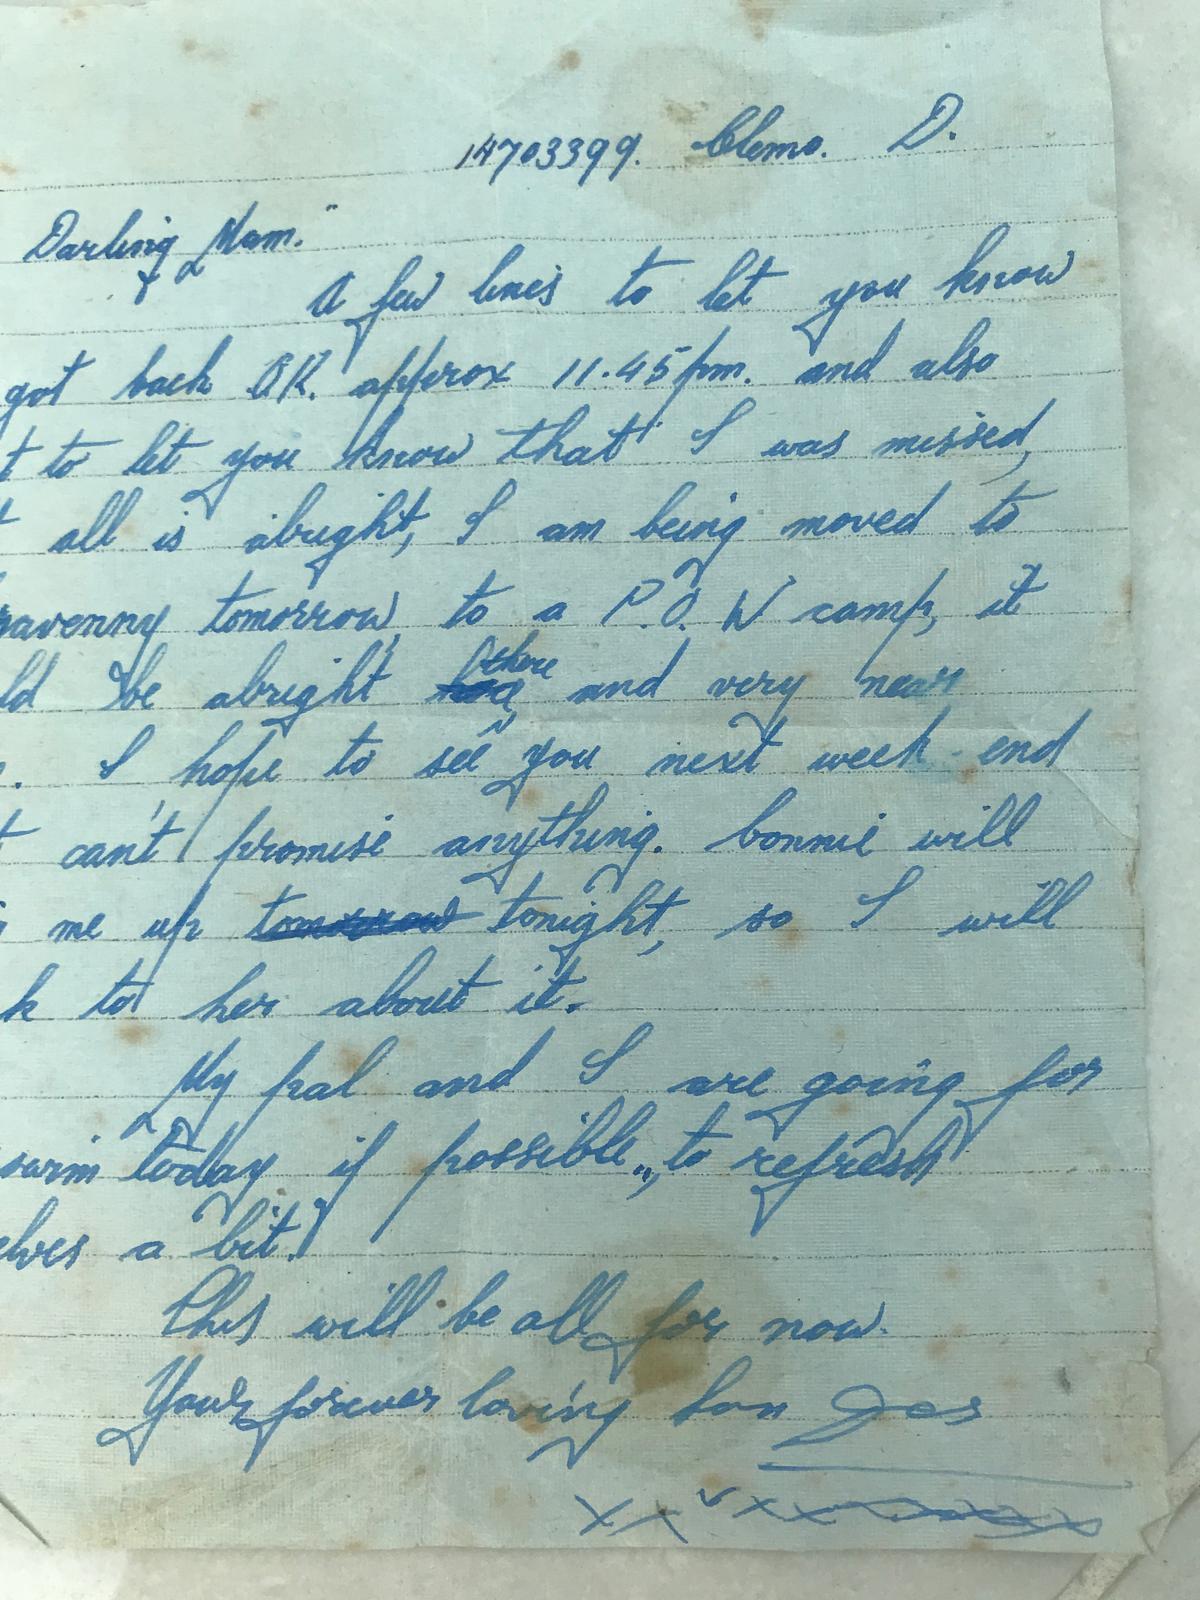 14703399. Clemo. D.
Darling Mam."
A few lines to let you know
got back O.K. approx 11.45pm. and also
t to let you know that I was missed,
t all is abright, I am being moved to
avenny tomorrow, to a P.O.W camp, it
ld be abright there and very near
. I hope to see you next week-end
t can't promise anything. bonnie will
me up tomorrow tonight, so I will
k to her about it.
My pal and I are going for
swim today if possible,, to refresh
elves a bit.
This will be all for now.
Yours forever loving Son Des
x x x x x